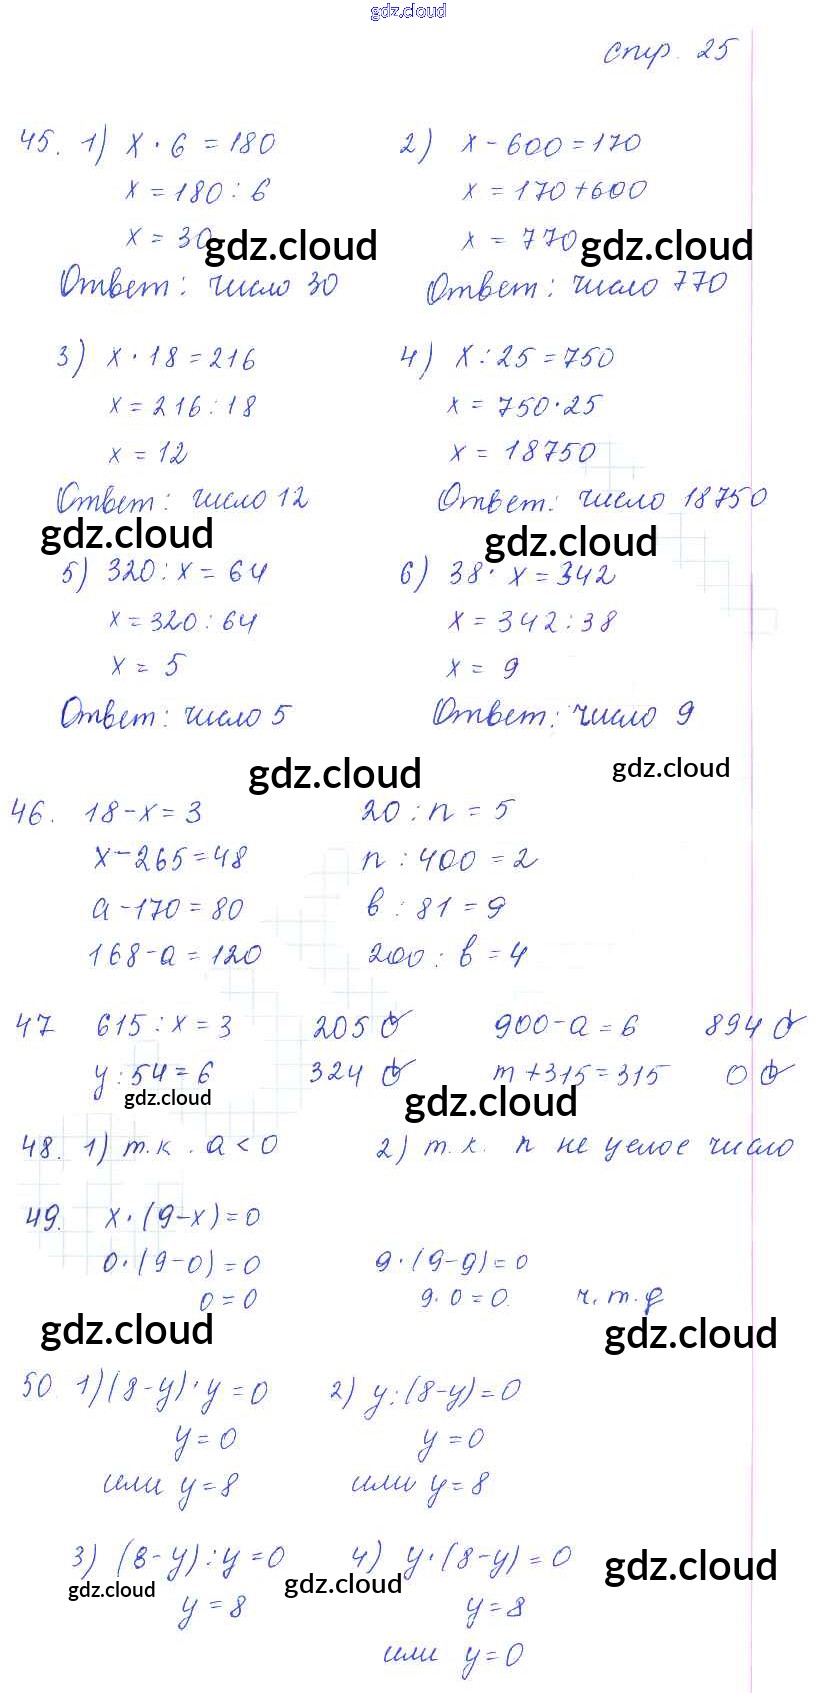 gdz.cloud
стр. 25
45. 1) x · 6 = 180
x = 180 : 6
x = 30
Ответ: число 30
2) x - 600 = 170
x = 170 + 600
x = 770
Ответ: число 770
gdz.cloud
gdz.cloud
3) x · 18 = 216
x = 216 : 18
x = 12
Ответ: число 12
4) x : 25 = 750
x = 750 · 25
x = 18750
Ответ: число 18750
gdz.cloud
gdz.cloud
5) 320 : x = 64
x = 320 : 64
x = 5
Ответ: число 5
6) 38 · x = 342
x = 342 : 38
x = 9
Ответ: число 9
gdz.cloud
gdz.cloud
46. 18 - x = 3
x - 265 = 48
a - 170 = 80
168 - a = 120
20 : n = 5
n : 400 = 2
в : 81 = 9
200 : в = 4
47 615 : x = 3 205 900 - a = 6 894
y : 54 = 6 324 m + 315 = 315 0
gdz.cloud
gdz.cloud
48. 1) т.к. a < 0 2) т.к. n не целое число
49. x · (9 - x) = 0
0 · (9 - 0) = 0 9 · (9 - 9) = 0
0 = 0 9 · 0 = 0 ч.т.д
gdz.cloud
gdz.cloud
50. 1) (8 - y) · y = 0
y = 0
или y = 8
2) y : (8 - y) = 0
y = 0
или y = 8
3) (8 - y) : y = 0
y = 8
4) y · (8 - y) = 0
y = 8
или y = 0
gdz.cloud
gdz.cloud
gdz.cloud